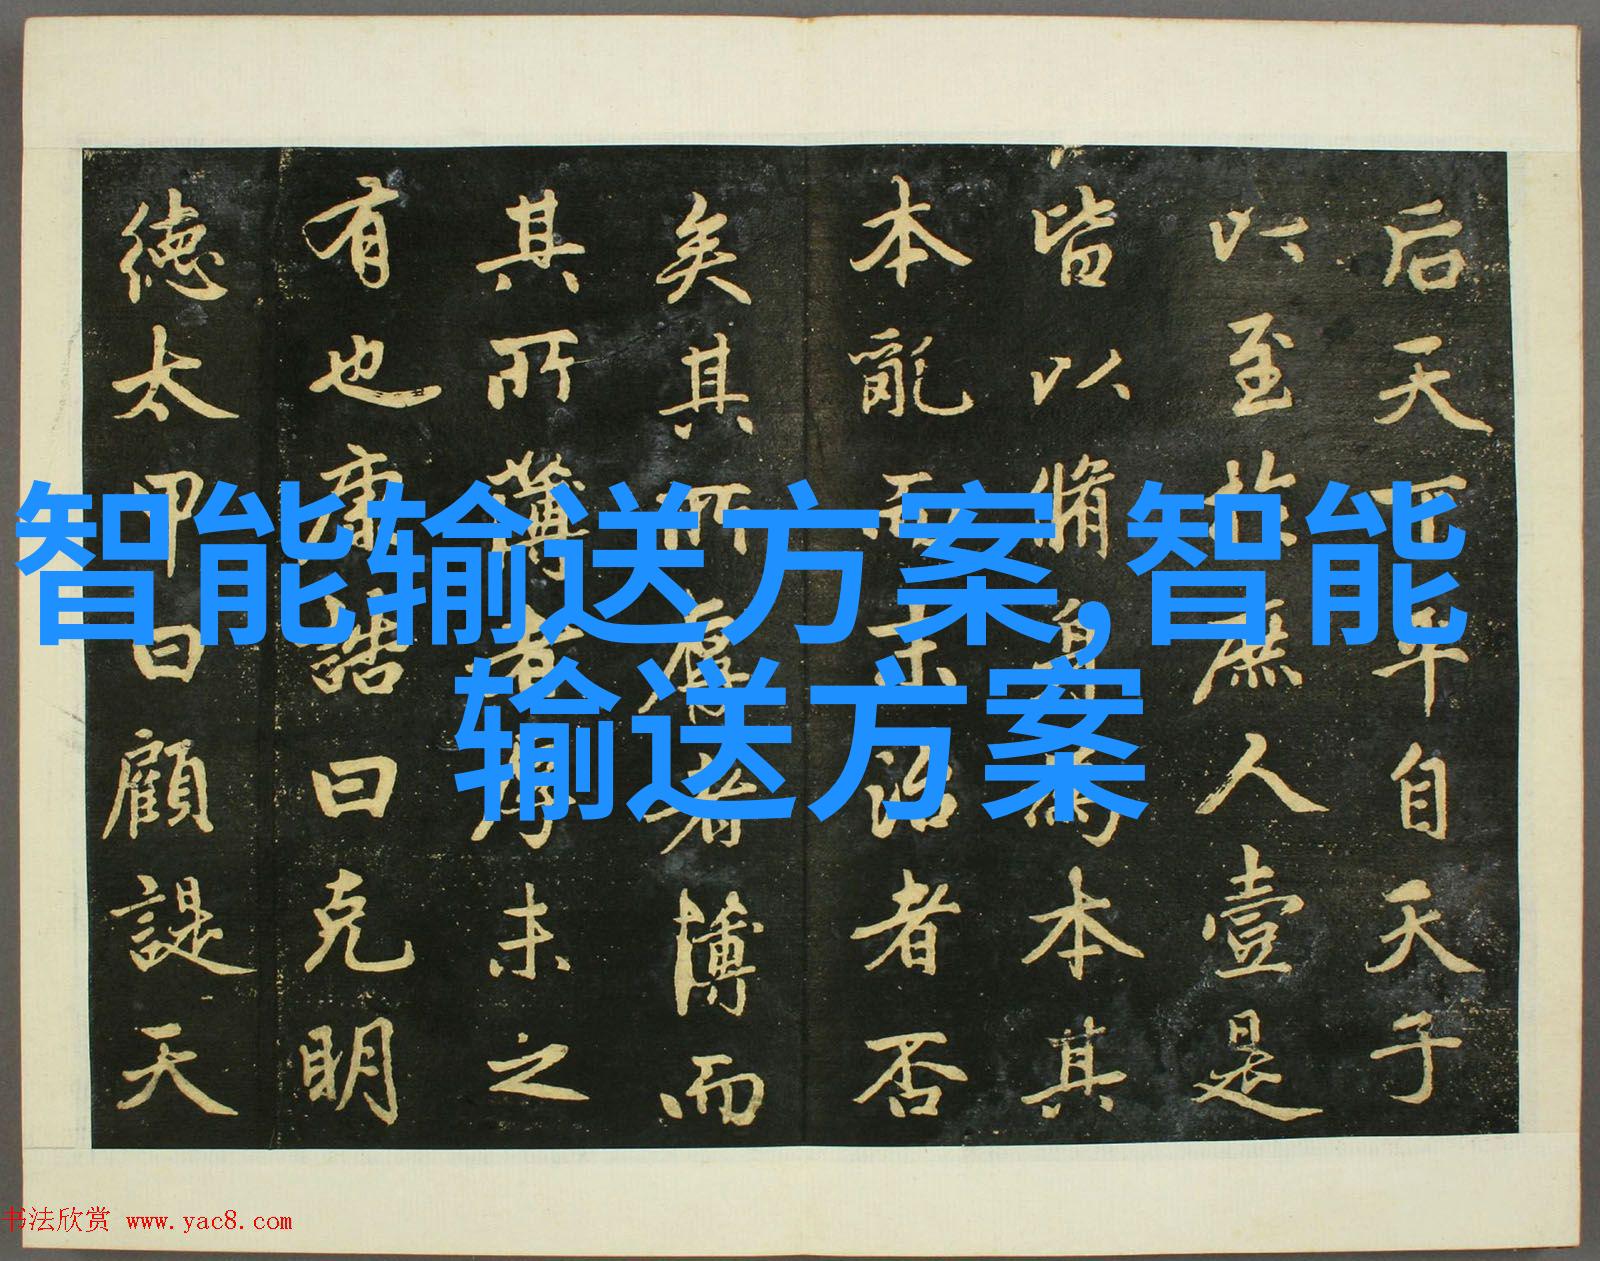 后天下平自天子
以至於庶人壹是
皆以脩身為本其
本亂而末治者否
矣其所厚者薄而
其所薄者厚未之
有也康誥曰克明
徳太甲曰顧諟天
智能输送方案,智能
输送方案
书法欣赏 www.yac8.com